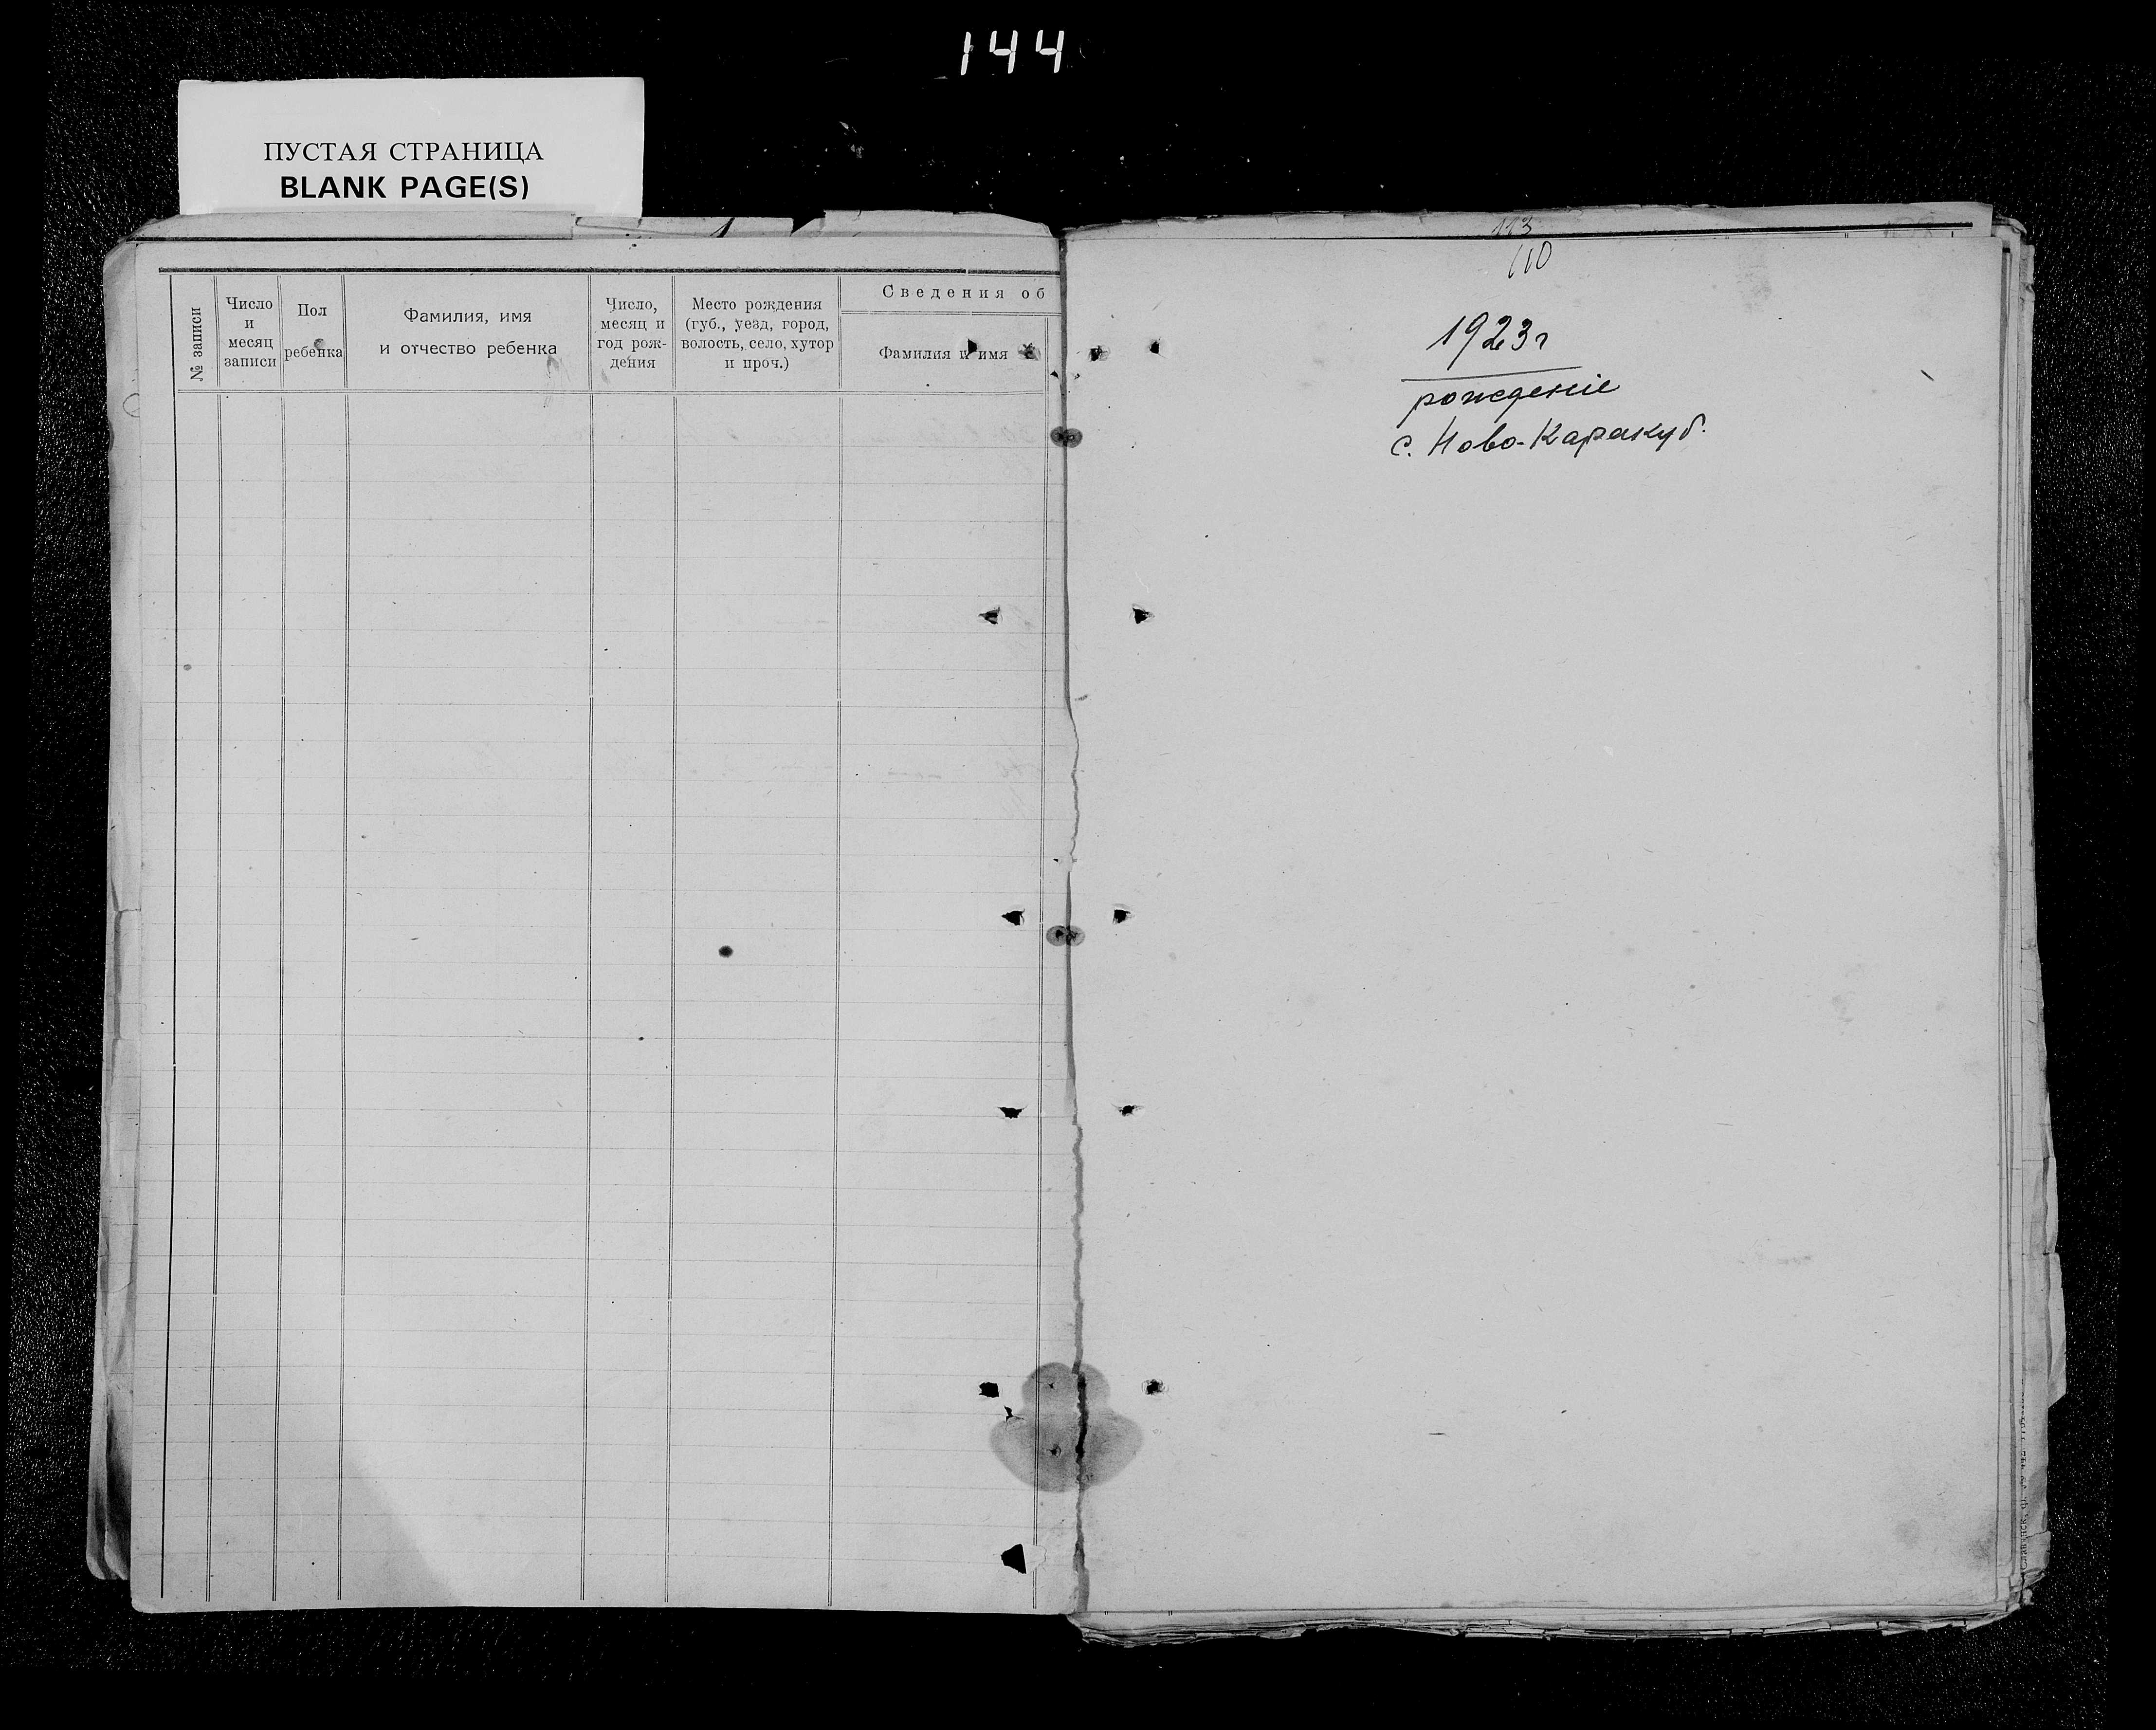 144
ПУСТАЯ СТРАНИЦА
BLANK PAGE(S)
№ записи
Число
и
месяц
записи
Пол
ребенка
Фамилия, имя
и отчество ребенка
Число,
месяц и
год рож-
дения
Место рождения
(губ., уезд, город,
волость, село, хутор
и проч.)
Сведения об
Фамилия и имя
113
110
1923 г
рожденіе
с. Ново-Каракуб.